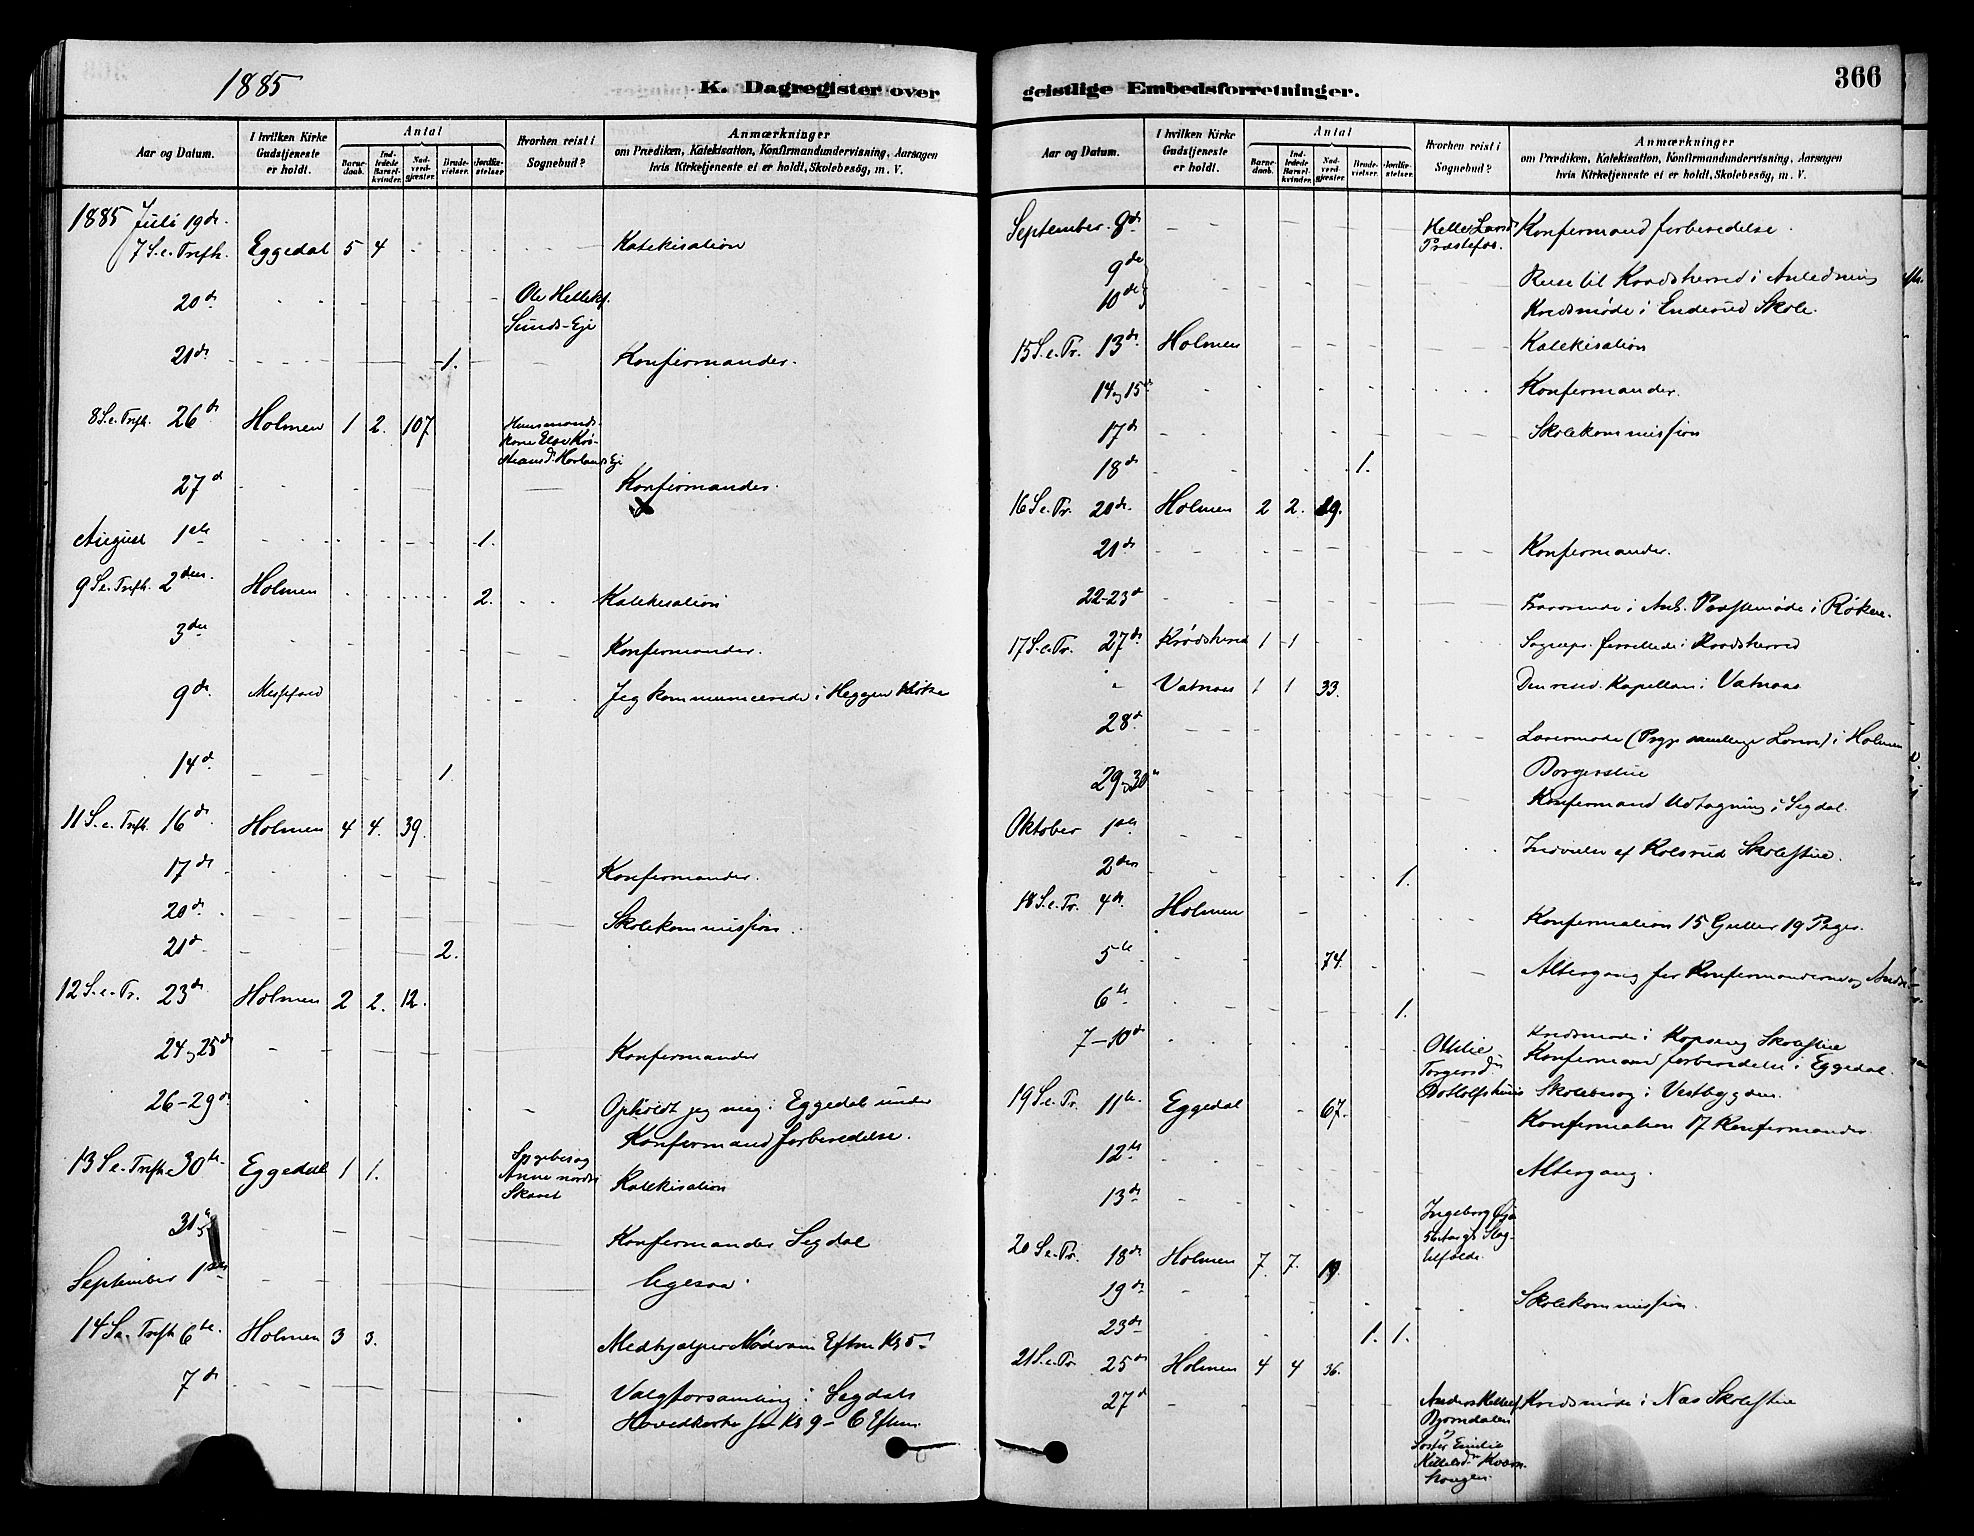 1885
K. Dagregister over
Aar og Datum.
I hvilken Kirke Gudstjeneste er holdt.
Antal
Barnedaab.
Indledede Barselkvinder.
Nadverdgjester.
Brudevielser.
Jordfæstelser.
Hvorhen reist i Sognebud?
Anmærkninger
om Prædiken, Katekisation, Konfirmandundervisning, Aarsagen
hvis Kirketjeneste ei er holdt, Skolebesög, m. V.
1885 Juli 19de.
7 S. e. Trefh. Eggedal 5 4 Katekisation
20d Ole Helleks.
Sunds-Eje
21de 1. Konfirmander.
8 S. e. Trefh. 26d Holmen 1 2. 107. Husmands-
kone Else
27d Konfirmander.
August 1ste 1.
9 S. e. Trefh. 2den. Holmen 2. Katekisation
3die Konfermander.
9de. Messefald Jeg kommunicerede i Heggen Kirke
14d. 1.
11 S. e. Trefh. 16de Holmen 4 4. 39.
17de Konfermander.
20de. Skolekommission.
21d. 2.
12 S. e. Tr. 23de Holmen 2 2. 12.
24 og 25de Konfermander
26-29de. Opholdt jeg mig i Eggedal under
Konfermandforberedelse.
13 S. e. Trefh. 30te Eggedal 1 1. Sygebesøg
Anne nordre
Skaret
Katekisation
31te Konfermander Sigdal
September 1ste ligesaa.
14 S. e. Trefh 6te. Holmen 3 3. Medhjælper Møde Eftm. Kl 5
7de Valgforsamling i Sigdals
Hovedkirke fra Kl 9 - 6 Eftm.
geistlige Embedsforretninger.
366
Aar og Datum.
I hvilken Kirke Gudstjeneste er holdt.
Antal
Barnedaab.
Indledede Barselkvinder.
Nadverdgjester.
Brudevielser.
Jordfæstelser.
Hvorhen reist i Sognebud?
Anmærkninger
om Prædiken, Katekisation, Konfirmandundervisning, Aarsagen
hvis Kirketjeneste ei er holdt, Skolebesög, m. V.
September. 8de
Præstefos.
Konfermandforberedelse.
9de
10de
Reise til Krødsherred i Anledning
Kredsmøde i Enderud Skole.
15 S. e. Tr. 13de. Holmen Katekisation
14 og 15de Konfermander.
17de Skolekommission
18de 1.
16 S. e. Tr. 20de. Holmen 2 2. 29.
21de Konfermander.
22-23de Fraværende i Anl. Præstemøde i Røken
17 S. e. Tr. 27de Krødsherred 1 1 Sognepr. forrettede i Krødsherred
Vatnaas 1 1 33. Den resid. Kapellan i Vatnaas
28de Lærermøde i Holmen
Borgerstue
29 og 30te Konfermand Udtagning i Sigdal.
Oktober 1ste Indvielse af Kolsrud Skolestue.
2den 1.
18 S. e. Tr. 4de. Holmen Konfermation 15 Gutter 19 Piger.
5te 74. Altergang for Konfermanderne og Andre
6te 1.
7-10de Kredsmøde i Kopseng Skolestue
Othilie
Torgersdr.
Konfermandforberedelse i Eggedal.
Botholfshuus Skolebesøg i Vestbygden.
19 S. e. Tr. 11te. Eggedal 67. Konfermation 17 Konfermander
12te Altergang.
13de
Ingeborg
20 S. e. Tr. 18de Holmen 7. 7. 19.
19de Skolekommission.
23de 1. 1.
21 S. e. Tr 25de Holmen 4 4 36.
27d Anders
Bjørndalen
og
Søster Emilie
Kredsmøde i Næs Skolestue